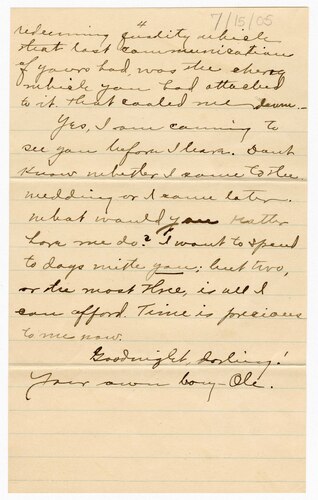 4
7/15/05
redeeming quality which
that last communication
of yours had, was the cherry
which you had attached
to it. That cooled me down.—
Yes, I am coming to
see you before I leave. Don't
know whether I come to the
wedding or I come later.
What would you rather
have me do? I want to spend
to days with you; but two,
or the most three, is all I
can afford. Time is precious
to me now.
Goodnight, darling!
Your own boy—Ole.